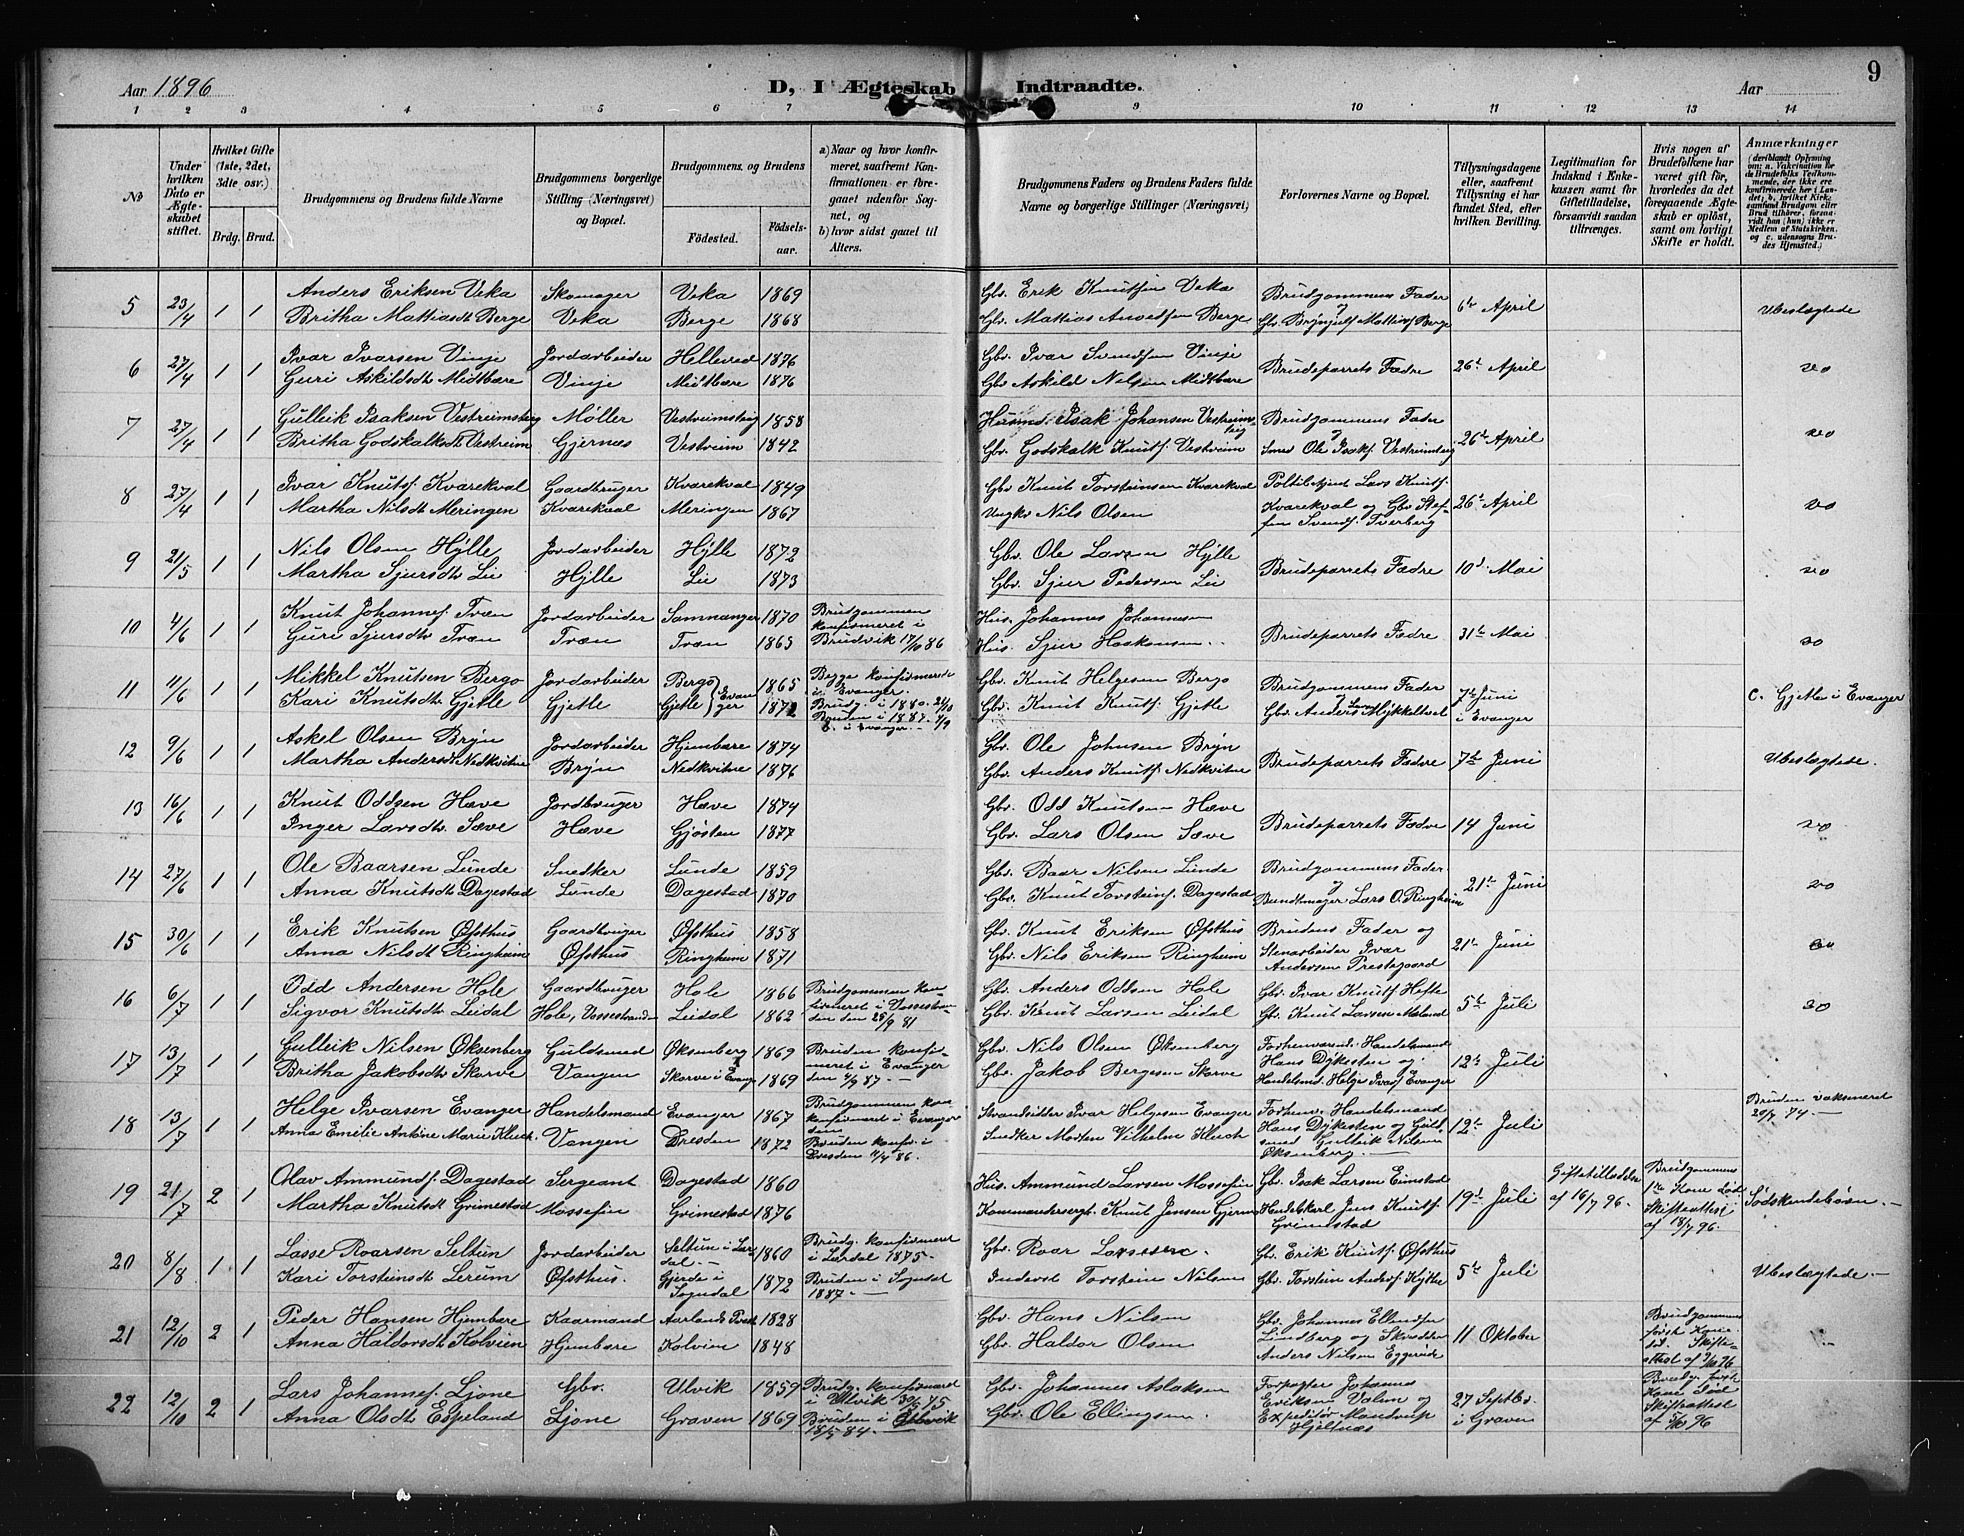 Aar 1896
D, I Ægteskab Indtraadte.
Aar
9
1 2 3 4 5 6 7 9 10 11 12 13 14
No
Under hvilken Dato er Ægteskabet stiftet.
Hvilket Gifte (1ste, 2det, 3dte osv.)
Brdg. Brud.
Brudgommens og Brudens fulde Navne
Brudgommens borgerlige Stilling (Næringsvei) og Bopæl.
Brudgommens og Brudens
Födested.
Födselsaar.
a) Naar og hvor konfirmeret, saafremt Konfirmationen er foregaaet udenfor Sognet, og
b) hvor sidst gaaet til Alters.
Brudgommens Faders og Brudens Faders fulde Navne og borgerlige Stillinger (Næringsvei)
Forlovernes Navne og Bopæl.
Tillysningsdagene eller, saafremt Tillysning ei har fundet Sted, efter hvilken Bevilling.
Legitimation for Indskud i Enkekassen samt for Giftetilladelse, forsaavidt saadan tiltrænges.
Hvis nogen af Brudefolkene har været gift för, hvorledes da det foregaaende Ægteskab er oplöst, samt om lovligt Skifte er holdt.
Anmærkninger
5 23/4 1 1 Anders Eriksen Veka Skomager Veka 1869 Gbr. Erik Knutsen Veka Brudgommens Fader 6te April Ubeslægtede
Britha Mattiasdt Berge Veka Berge 1868 Gbr. Mattias Berge og Gbr. Brynjulf Mattiasf Berge
6 27/4 1 1 Ivar Ivarsen Vinje Jordarbeider Helleved 1876 Gbr. Ivar Svendsen Vinje Brudeparrets Fædre 26t April do
Guri Askildsdt Midtbære Vinje Midtbære 1876 Gbr Askild Nilsen Midtbære
7 27/4 1 1 Gulleik Isaksen Vestreimsteig Møller Vestreimsteig 1858 Husmd. Isak Johansen Vestreimsteig Brudgommens Fader 26t April do
Britha Godskalksdt Vestreim Gjernæs Vestreim 1842 Gbr. Godskalk Knutf. Vestreim og Smed Ole Isakf Vestreimsteig
8 27/4 1 1 Ivar Knutsf. Kvarekval Gaardbruger Kvarekval 1849 Gbr Knut Torsteinsen Kvarekval Lars Knutsf. 26t April do
Martha Nilsdt Meringen Kvarekval Meringen 1867 Ungkr Nils Olsen Kvarekval og Gbr Steffen Svendsf. Tverberg
9 21/5 1 1 Nils Olsen Hylle Jordarbeider Hylle 1872 Gbr. Ole Larsen Hylle Brudeparrets Fædre 10d Mai do
Martha Sjursdtr Lie Hylle Lie 1873 Gbr. Sjur Pedersen Lei
10 4/6 1 1 Knut Johannesf. Træn Jordarbeider Samnanger 1870 Brudgommen konfirmeret i Brudvik 17/10 86 Hus. Johannes Johannesen Brudeparrets Fædre 31te Mai do
Guri Sjursdtr Træn Træn Træn 1863 Hus. Sjur Haakonsen
11 11/6 1 1 Mikkel Knutsen Bergo Jordarbeider Bergo 1865 Begge konfirmerede i Evanger. Gbr. Knut Helgesen Bergo Brudgommens Fader 7de Juni i Evanger C. Gjetle i Evanger
Kari Knutsdtr Gjetle Gjetle Gjetle Evanger 1872 Brudg. i 1880. Bruden i 1887. Gbr. Knut Knutsf. Gjetle
12 9/6 1 1 Askel Olsen Bryn Jordarbeider Hjembære 1874 Gbr. Ole Johnsen Bryn Brudeparrets Fædre 7de Juni Ubeslægtede.
Martha Andersdt Nedkvitne Bryn Nedkvitne 1876 Gbr. Anders Knutsf. Nedkvitne
13 16/6 1 1 Knut Oddsen Hæve Jordbruger Hæve 1874 Gbr. Odd Knutsen Hæve Brudeparrets Fædre 14 Juni do
Inger Larsdtr Sæve Hæve Gjøsten 1877 Gbr. Lars Olsen Sæve
14 27/6 1 1 Ole Baarsen Lunde Snedker Lunde 1859 Gbr. Baar Nilsen Lunde Brudgommens Fader 21te Juni do
Anna Knutsdt Dagestad Lunde Dagestad 1870 Gbr. Knut Torsteinsf. Dagestad og Buntmager Lars O. Ringheim
15 30/6 1 1 Erik Knutsen Øfsthus Gaardbruger Øfsthus 1858 Gbr. Knut Eriksen Øfsthus Brudens Fader og 21te Juni do
Anna Nilsdt Ringheim Øfsthus Ringheim 1871 Gbr. Nils Eriksen Ringheim Stenarbeider Ivar Andersen Prestegaard
16 6/7 1 1 Odd Andersen Hole Gaardbruger Hole 1866 Brudgommen konfirmeret i Vossestranden den 25/9 81 Gbr. Anders Oddsen Hole Gbr. Ivar Knutsf Hefte 5te Juli do
Sigvor Knutsdtr Leidal Hole, Vossestranden Leidal 1862 Gbr. Knut Larsen Leidal Gbr. Knut Larsen Møland
17 13/7 1 1 Gulleik Nilsen Øksenberg Guldsmed Øksenberg 1869 Bruden konfirmeret i Evanger den 4/9 87. Gbr. Nils Olsen Øksenberg Forhenværend. Handelsmand 12te Juli
Britha Jakobsdtr Skorve Vangen Skorve i Evang. 1869 Gbr. Jakob Bergesen Skorve Hans Dykesten og Handelsmd. Helge Ivarsf Evanger
18 13/7 1 1 Helge Ivarsen Evanger Handelsmand Evanger 1867 Brudgommen konfirmeret i Evanger Strandsidder Ivar Helgesen Evanger Forhenv. Handelsmand 12te Juli Bruden vaksineret 20/7 74.
Anna Emilie Antonie Marie Kluck. Vangen Dresden 1872 Bruden konfir. i Dresden 11/4 86. Snedker Morten Vilhelm Kluch Hans Dykesten og Guldsmed Gulleik Nilsen Øksenberg.
19 21/7 2 1 Olav Ammundsf. Dagestad Sergeant Dagestad 1860 Hus. Ammund Larsen Mossefin Gbr. Isak Larsen Eimstad 19de Juli Giftetilladelse af 16/7 96. Brudgommens 1te Kone död Skifteattest af 18/7 96. Södskendebörn
Martha Knutsdt Grimestad Mossefin Grimestad 1876 Kommandersergt. Knut Jensen Handelskarl Jens Knutsf. Grimestad
20 8/8 1 1 Lasse Roarsen Seltun Jordarbeider Seltun i Lærdal 1860 Brudg. konfirmeret i Lærdal 1875. Gbr. Roar Larsen. Gbr. Erik Knutsf. Øfsthus 5te Juli Ubeslægtede.
Kari Torsteinsdt Lerum Øfsthus. Gjerde i Sogndal 1872 Bruden i Sogndal 1887. Inderst Torstein Nilsen Gbr. Torstein Andersf. Kyte
21 12/10 2 1 Peder Hansen Hjembære Kaarmand Aarlands Præst. 1828 Gbr. Hans Nilsen Gbr. Johannes Ellendsen 11 Oktober Brudgommens först Kone död. Skifteattest af 9/10 96
Anna Haldorsdt Kolvien Hjembære Kolvien 1848 Gbr. Haldor Olsen Lindberg og Skrædder Anders Nilsen Eggereide
22 12/10 2 1 Lars Johannesf. Ljone Gbr. Ulvik 1859 Brudg. konfirmeret i Ulvik 75 Gbr. Johannes Aslaksen Johannes 27 Septbr. i Graven Brudg. först Kone död Skifteattest af 96
Anna Olsdt Espeland Ljone Graven 1869 Bruden i 84. Gbr. Ole Ellingsen. Eriksen Valen og Expeditör Mandrup Hjeltnæs